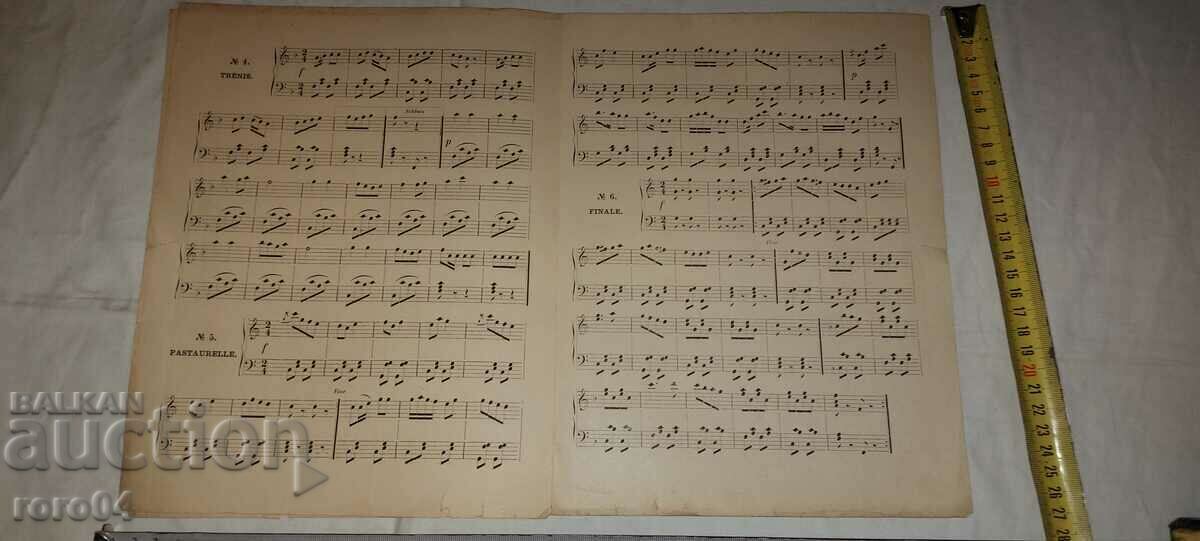 № 4.
TRÉNIS.
f
Schluss
p
№ 5.
PASTAURELLE.
f
Fine
p
№ 6.
FINALE.
f
Fine
BALKAN
auction
roro04
2 3 4 5 6 7 8 9 10 11 12 13 14 15 16 17 18 19 20 21 22 23 24 25 26 27 28